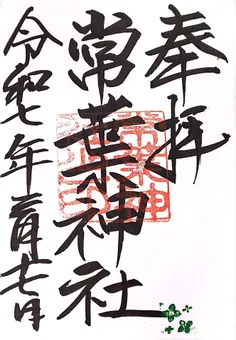 奉拝
常葉神社
令和七年二月十七日